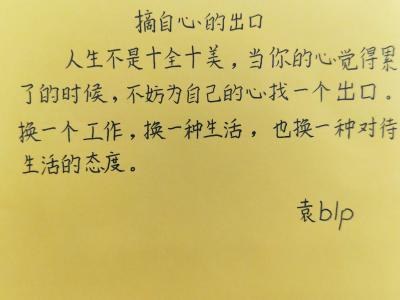 搞自心的出口
人生不是十全十美，当你的心觉得累
了的时候，不妨为自己的心找一个出口。
换一个工作，换一种生活，也换一种对待
生活的态度。
袁blp